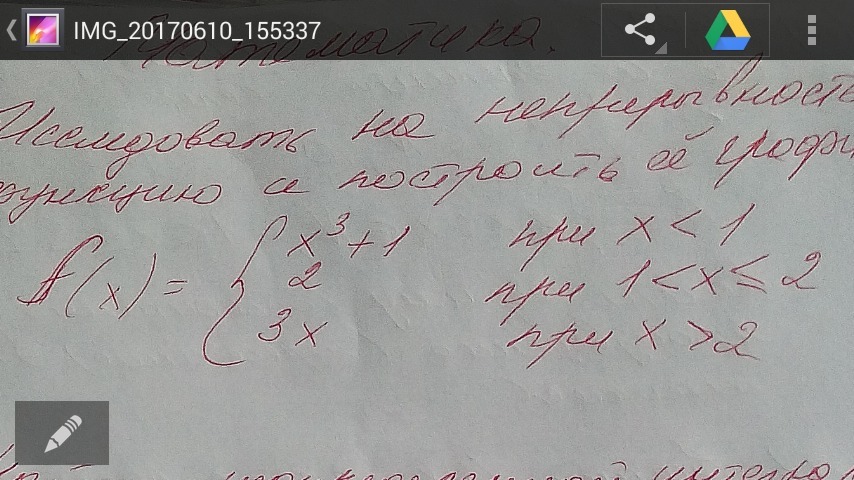 IMG_20170610_155337
Математика.
Исследовать на непрерывность
функцию и построить её графи
f(x) = { x³+1 при x < 1
2 при 1 < x ≤ 2
3x при x > 2